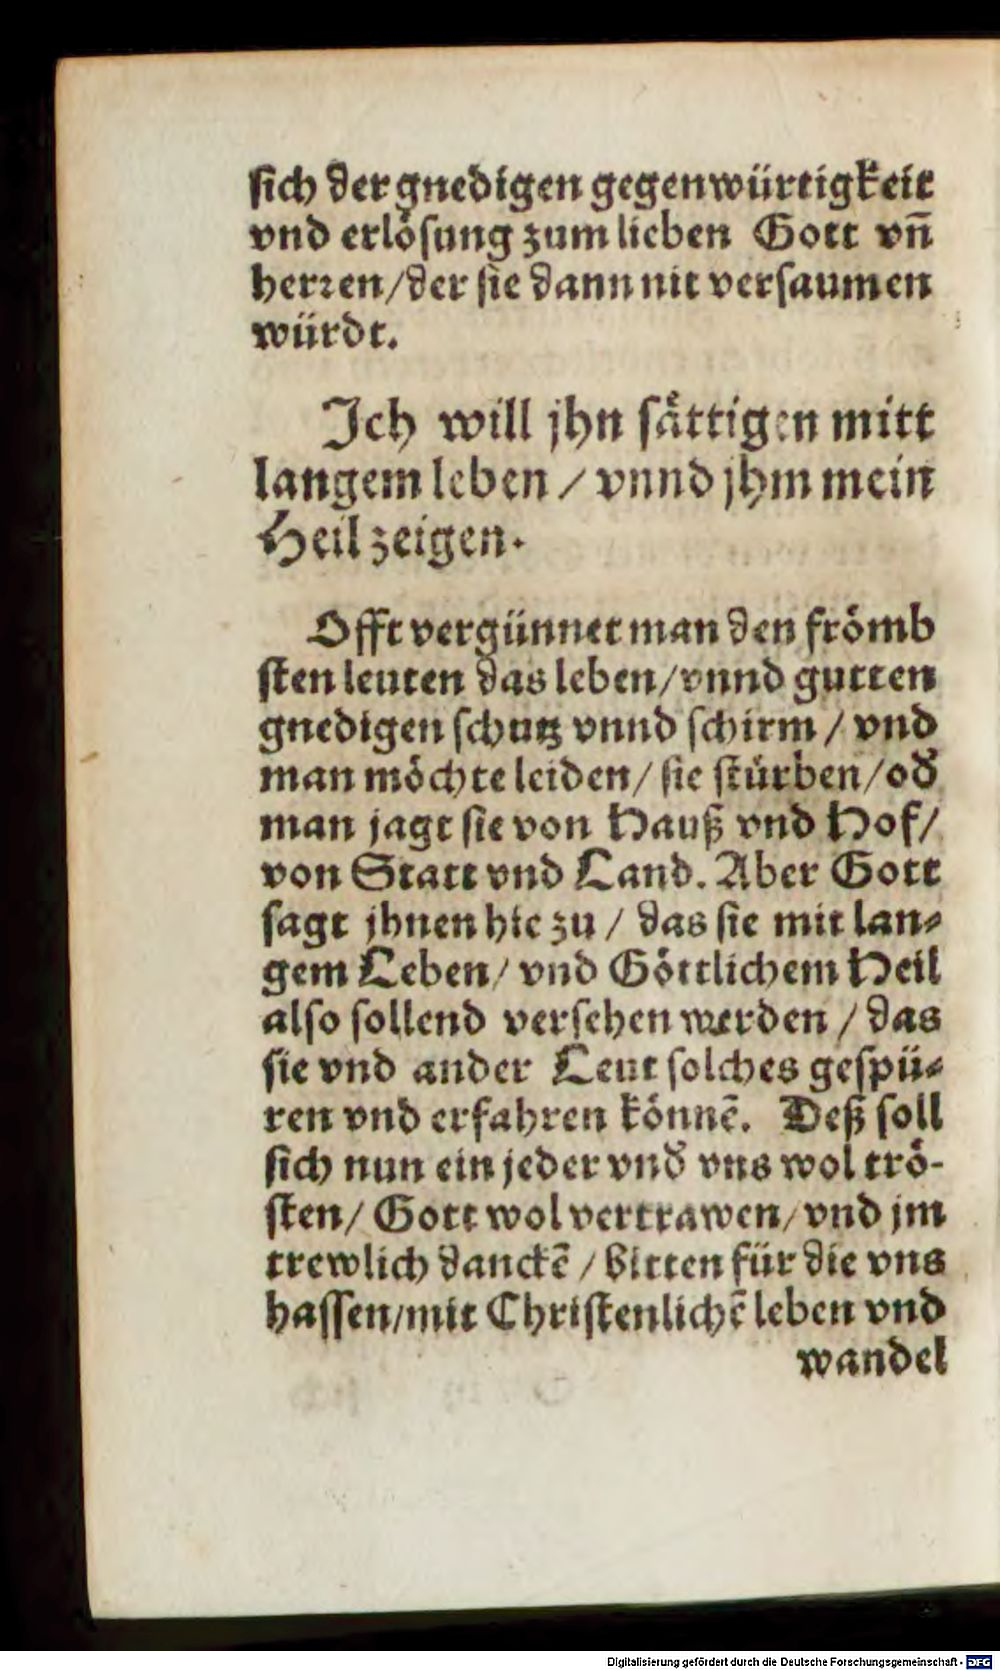 sich der gnedigen gegenwürtigkeit
vnd erlösung zum lieben Gott vn̄
herꝛen/der sie dann nit versaumen
würdt.
Ich will jhn sättigen mitt
langem leben / vnnd jhm mein
Heil zeigen.
Offt vergünnet man den frömb
sten leuten das leben/vnnd gutten
gnedigen schutz vnnd schirm / vnd
man möchte leiden/ sie stürben/od̄
man jagt sie von Hauß vnd Hof/
von Statt vnd Land. Aber Gott
sagt jhnen hie zu / das sie mit lan⸗
gem Leben/ vnd Göttlichem Heil
also sollend versehen werden / das
sie vnd ander Leut solches gespü⸗
ren vnd erfahren könnē. Deß soll
sich nun ein jeder vnd̄ vns wol trö-
sten/ Gott wol vertrawen/vnd jm
trewlich danckē / bitten für die vns
hassen/mit Christenlichē leben vnd
wandel
Digitalisierung gefördert durch die Deutsche Forschungsgemeinschaft - DFG